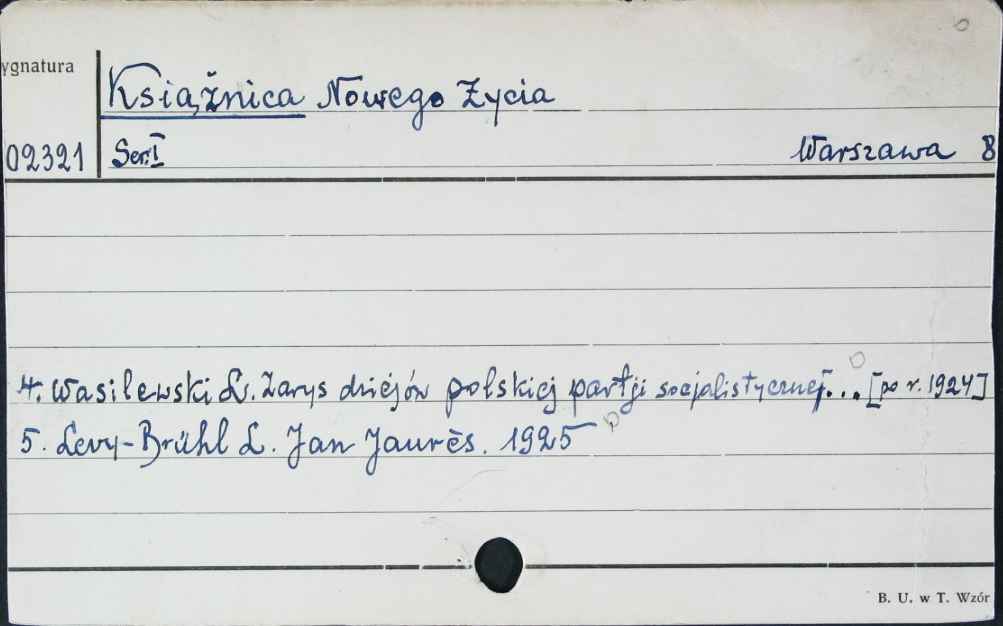 ygnatura
Książnica Nowego Życia
02321 Ser. I Warszawa 8
4. Wasilewski L. Zarys dziejów polskiej partji socjalistycznej... [po r. 1924]
5. Levy-Brühl L. Jan Jaurès. 1925
B. U. w T. Wzór